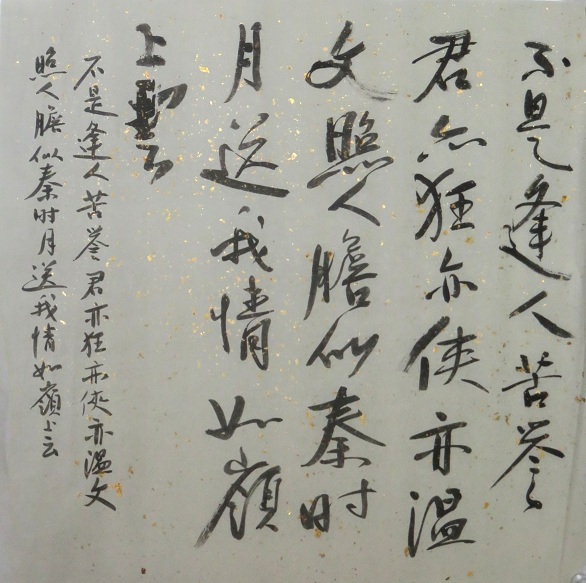 不是逢人苦誉
君亦狂亦侠亦温
文照人胆似秦时
月送我情如嶺
上雲
不是逢人苦誉君亦狂亦侠亦温文
照人膽似秦时月送我情如嶺上云